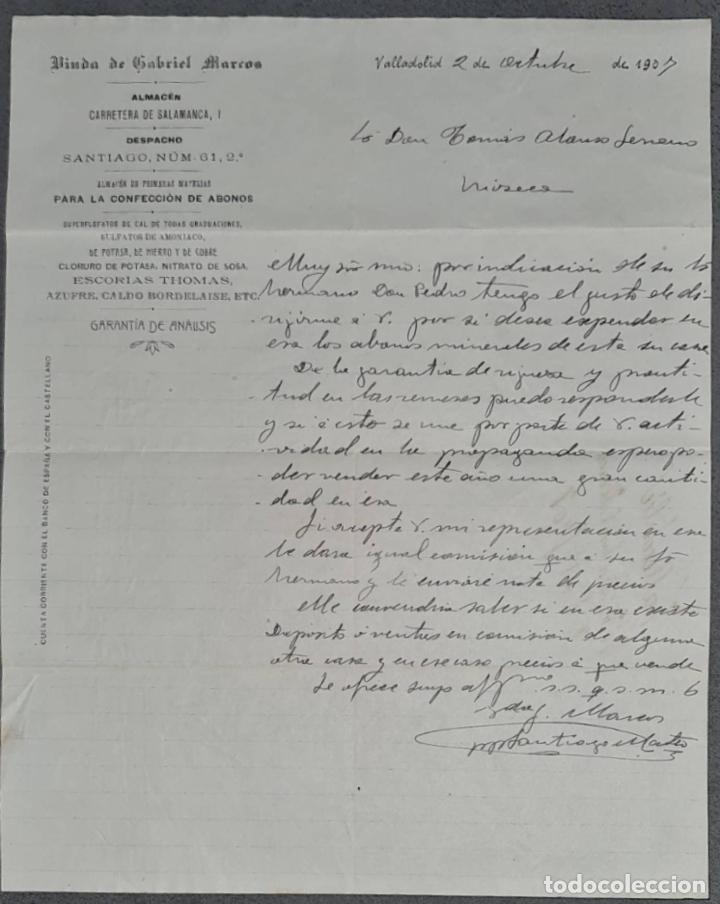 Viuda de Gabriel Marcos
ALMACÉN
CARRETERA DE SALAMANCA, 1
DESPACHO
SANTIAGO, NÚM. 61, 2.º
ALMACÉN DE PRIMERAS MATERIAS
PARA LA CONFECCIÓN DE ABONOS
SUPERFLOFATOS DE CAL DE TODAS GRADUACIONES,
SULFATOS DE AMONÍACO,
DE POTASA, DE HIERRO Y DE COBRE
CLORURO DE POTASA, NITRATO DE SOSA,
ESCORIAS THOMAS,
AZUFRE, CALDO BORDELAISE, ETC.
GARANTÍA DE ANÁLISIS
CUENTA CORRIENTE CON EL BANCO DE ESPAÑA Y CON EL CASTELLANO
Valladolid 2 de Octubre de 1907
Don Tomás Alonso Serrano
Rioseco
Muy Sor mio: por indicación de su
hermano Don Pedro tengo el gusto de di-
rijirme á V. por si desea expender en
esa los abonos minerales de esta su casa
De la garantia de riqueza y pronti-
tud en las remesas puedo responderle
y si á esto se une por parte de V. acti-
vidad en la propaganda espero po-
der vender este año una gran canti-
dad en esa
Si acepta V. mi representación en esa
le dará igual comisión que á su
hermano y le enviaré nota de precios
Me convendria saber si en esa existe
Deposito ó ventas en comisión de alguna
otra casa y en ese caso precios á que vende
Se ofrece suyo affmo s. s. q. s. m. b
Vda G. Marcos
pp Santiago Mateo
todocoleccion.net